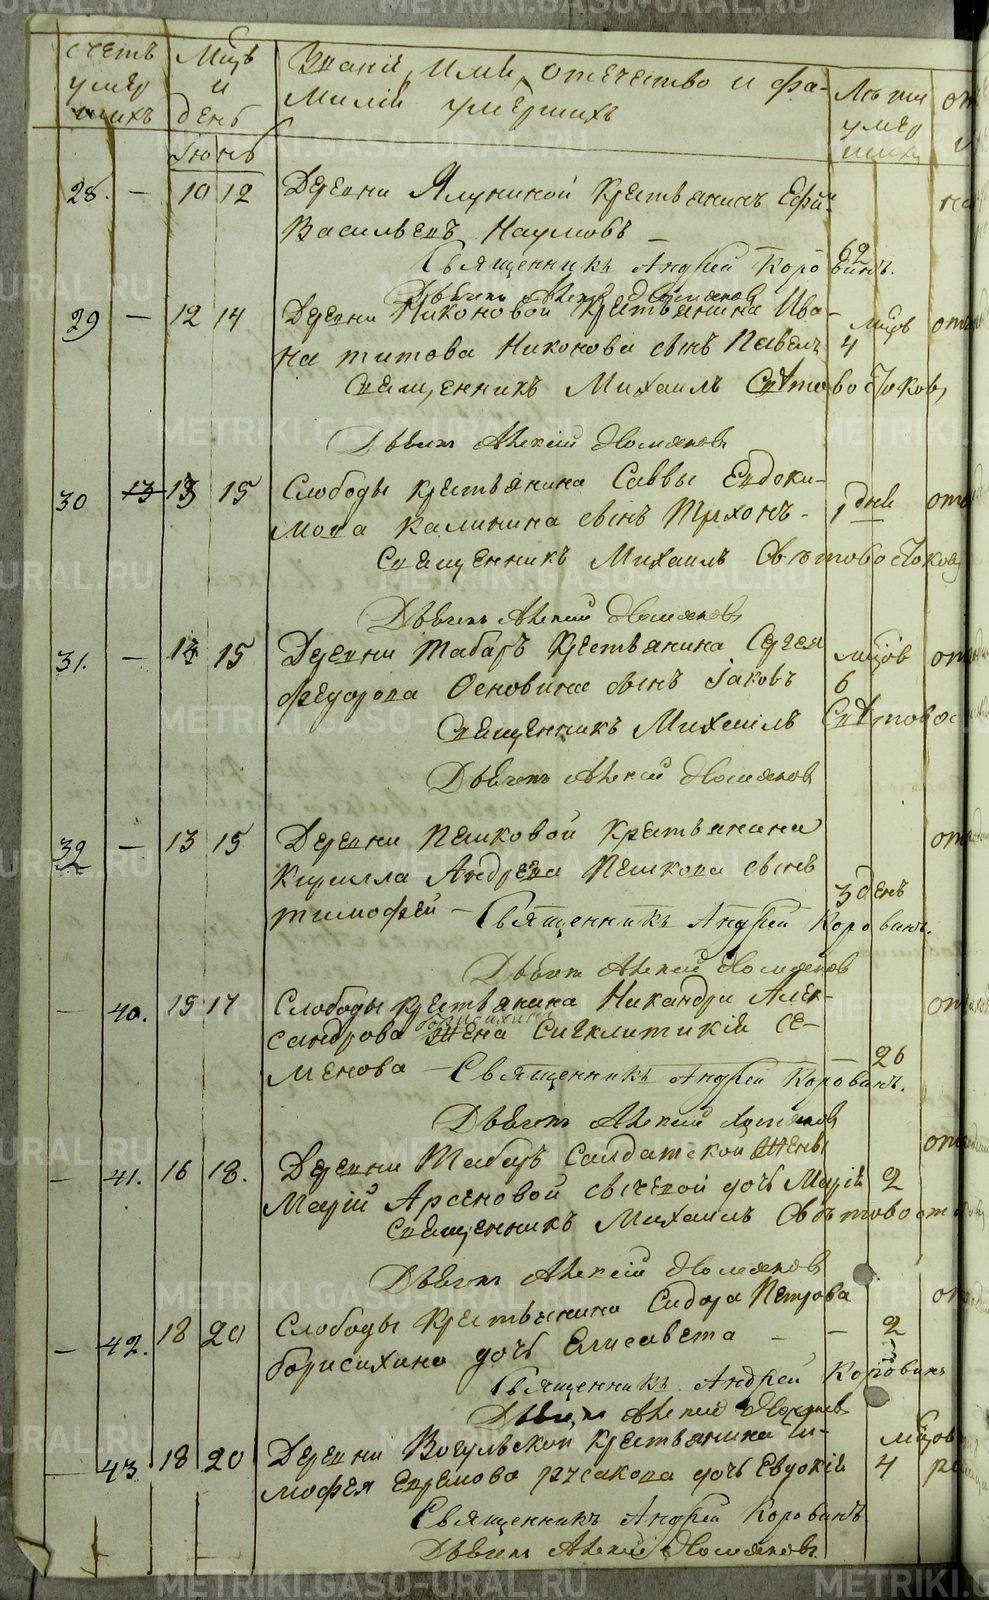 счетъ умер шихъ
Мцъ и день
Званiе, имя, отечество и фа-
милiи умершихъ
Лѣта умер шихъ
Iюнь
28. — 10 12 Деревни Ялуниной крестьянинъ Ефи-
Васильевъ Наумовъ — 62
Священникъ Андрей Коровинъ.
Дьячекъ Алексiй Хомяковъ
29 — 12 14 Деревни Никоновой крестьянина Ива-
на Титова Никонова сынъ Павелъ мцъ 4
Священникъ Михаилъ Свѣтовостоковъ
Дьячекъ Алексiй Хомяковъ
30 13 13 15 Слободы крестьянина Саввы Евдоки-
мова Калинина сынъ Трихонъ - 1 дне
Священникъ Михаилъ Свѣтовостоковъ
Дьячекъ Алексiй Хомяковъ
31. — 13 15 Деревни Табаръ крестьянина Сергея
Федорова Основина сынъ Iаковъ мцов 6
Священникъ Михаилъ Свѣтовос
Дьячекъ Алексiй Хомяков
32 — 13 15 Деревни Пешковой крестьянина
Кирилла Андреева Пешкова сынъ
Тимофей — 3 день
Священникъ Андрей Коровинъ.
Дьячекъ Алексiй Хомяков
— 40. 15 17 Слободы крестьянина Никандра Алек-
сандрова Борисихина жена Сиклитикiя Се-
менова — 26
Священникъ Андрей Коровинъ.
Дьячекъ Алексiй Хомяков
— 41. 16 18. Деревни Табаръ салдатской жены
Марiи Арсеновой сычевой дочь Марiя 2
Священникъ Михаилъ Свѣтовосто
Дьячекъ Алексiй Хомяков
— 42. 18 20 Слободы крестьянина Сидора Петрова
Борисихина дочь Елисавета — — 2
Священникъ Андрей Коровинъ
Дьячекъ Алексiй Хомяков
— 43 18 20 Деревни Вогульской крестьянина Ти-
мофея Ефремова Русакова дочь Евдокiя мцов 4
Священникъ Андрей Коровинъ
Дьячекъ Алексiй Хомяковъ
METRIKI.GASO-URAL.RU